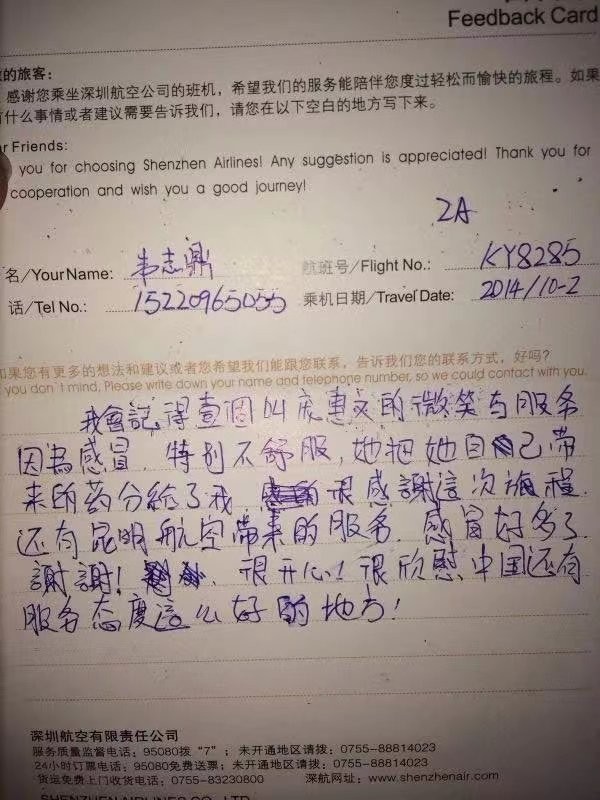 Feedback Card
的旅客：
感谢您乘坐深圳航空公司的班机，希望我们的服务能陪伴您度过轻松而愉快的旅程。如果
什么事情或者建议需要告诉我们，请您在以下空白的地方写下来。
r Friends:
you for choosing Shenzhen Airlines! Any suggestion is appreciated! Thank you for
cooperation and wish you a good journey!
2A
名/Your Name: 韦志鼎 航班号/Flight No.: KY8285
话/Tel No.: 15220965055 乘机日期/Travel Date: 2014/10-2
如果您有更多的想法和建议或者您希望我们能跟您联系，告诉我们您的联系方式，好吗？
you don't mind, Please write down your name and telephone number, so we could contact with you.
我會説得壹個叫庞惠文的微笑与服务
因為感冒.特别不舒服,她把她自己带
来的药分给了我.很感謝這次海程.
还有昆明航空带来的服务.感冒好多了.
謝謝!.很开心!很欣慰中国还有
服务态度這么好的地方!
深圳航空有限责任公司
服务质量监督电话：95080拨“7”；未开通地区请拨：0755-88814023
24小时订票电话：95080免费送票；未开通地区请拨：0755-88814023
货运免费上门收货电话：0755-83230800 深航网址：www.shenzhenair.com
SHENZHEN AIRLINES CO., LTD